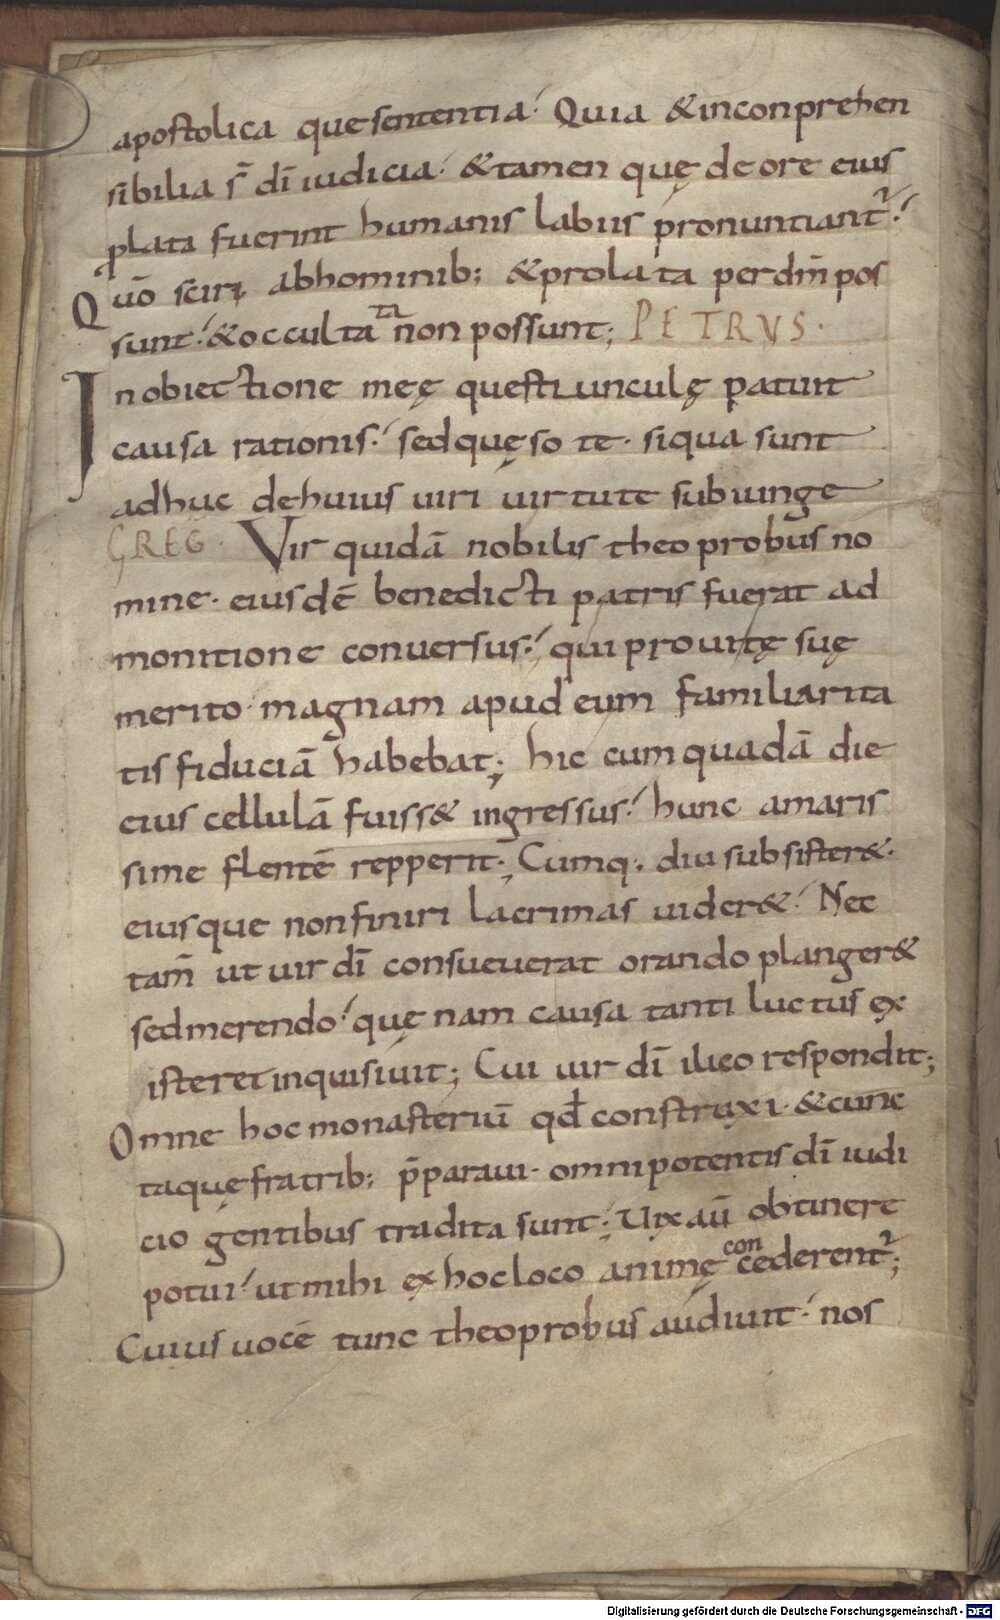 apostolica que sententia. Quia & inconprehen
sibilia s̄ dī iudicia. & tamen quę de ore eius
plata fuerint humanis labiis pronuntiant̉.
Quō sciri ab hominib; & prolata per dm̄ pos
sunt. & occultata non possunt; PETRVS.
In obiectione meę questiunculę patuit
causa rationis. sed quęso te. si qua sunt
adhuc de huius uiri uirtute subiunge
GREG. Vir quidā nobilis theoprobus no
mine. eiusdē benedicti patris fuerat ad
monitione conuersus. qui pro uitę suę
merito magnam apud eum familiarita
tis fiduciā habebat; hic cum quadā die
eius cellulā fuiss& ingressus. hunc amaris
sime flentē repperit; Cumq; diu subsister&.
eiusque non finiri lacrimas uider&. Nec
tam̄ ut uir dī consueuerat orando planger&
sed merendo. quę nam causa tanti luctus ex
isteret inquisiuit; Cui uir dī ilico respondit;
Omne hoc monasteriū qđ construxi. & cunc
taquę fratrib; p̄paraui. omnipotentis dī iudi
cio gentibus tradita sunt; Uix aū obtinere
potui. ut mihi ex hoc loco animę concederent̉;
Cuius uocē tunc theoprobus audiuit. nos
Digitalisierung gefördert durch die Deutsche Forschungsgemeinschaft - DFG